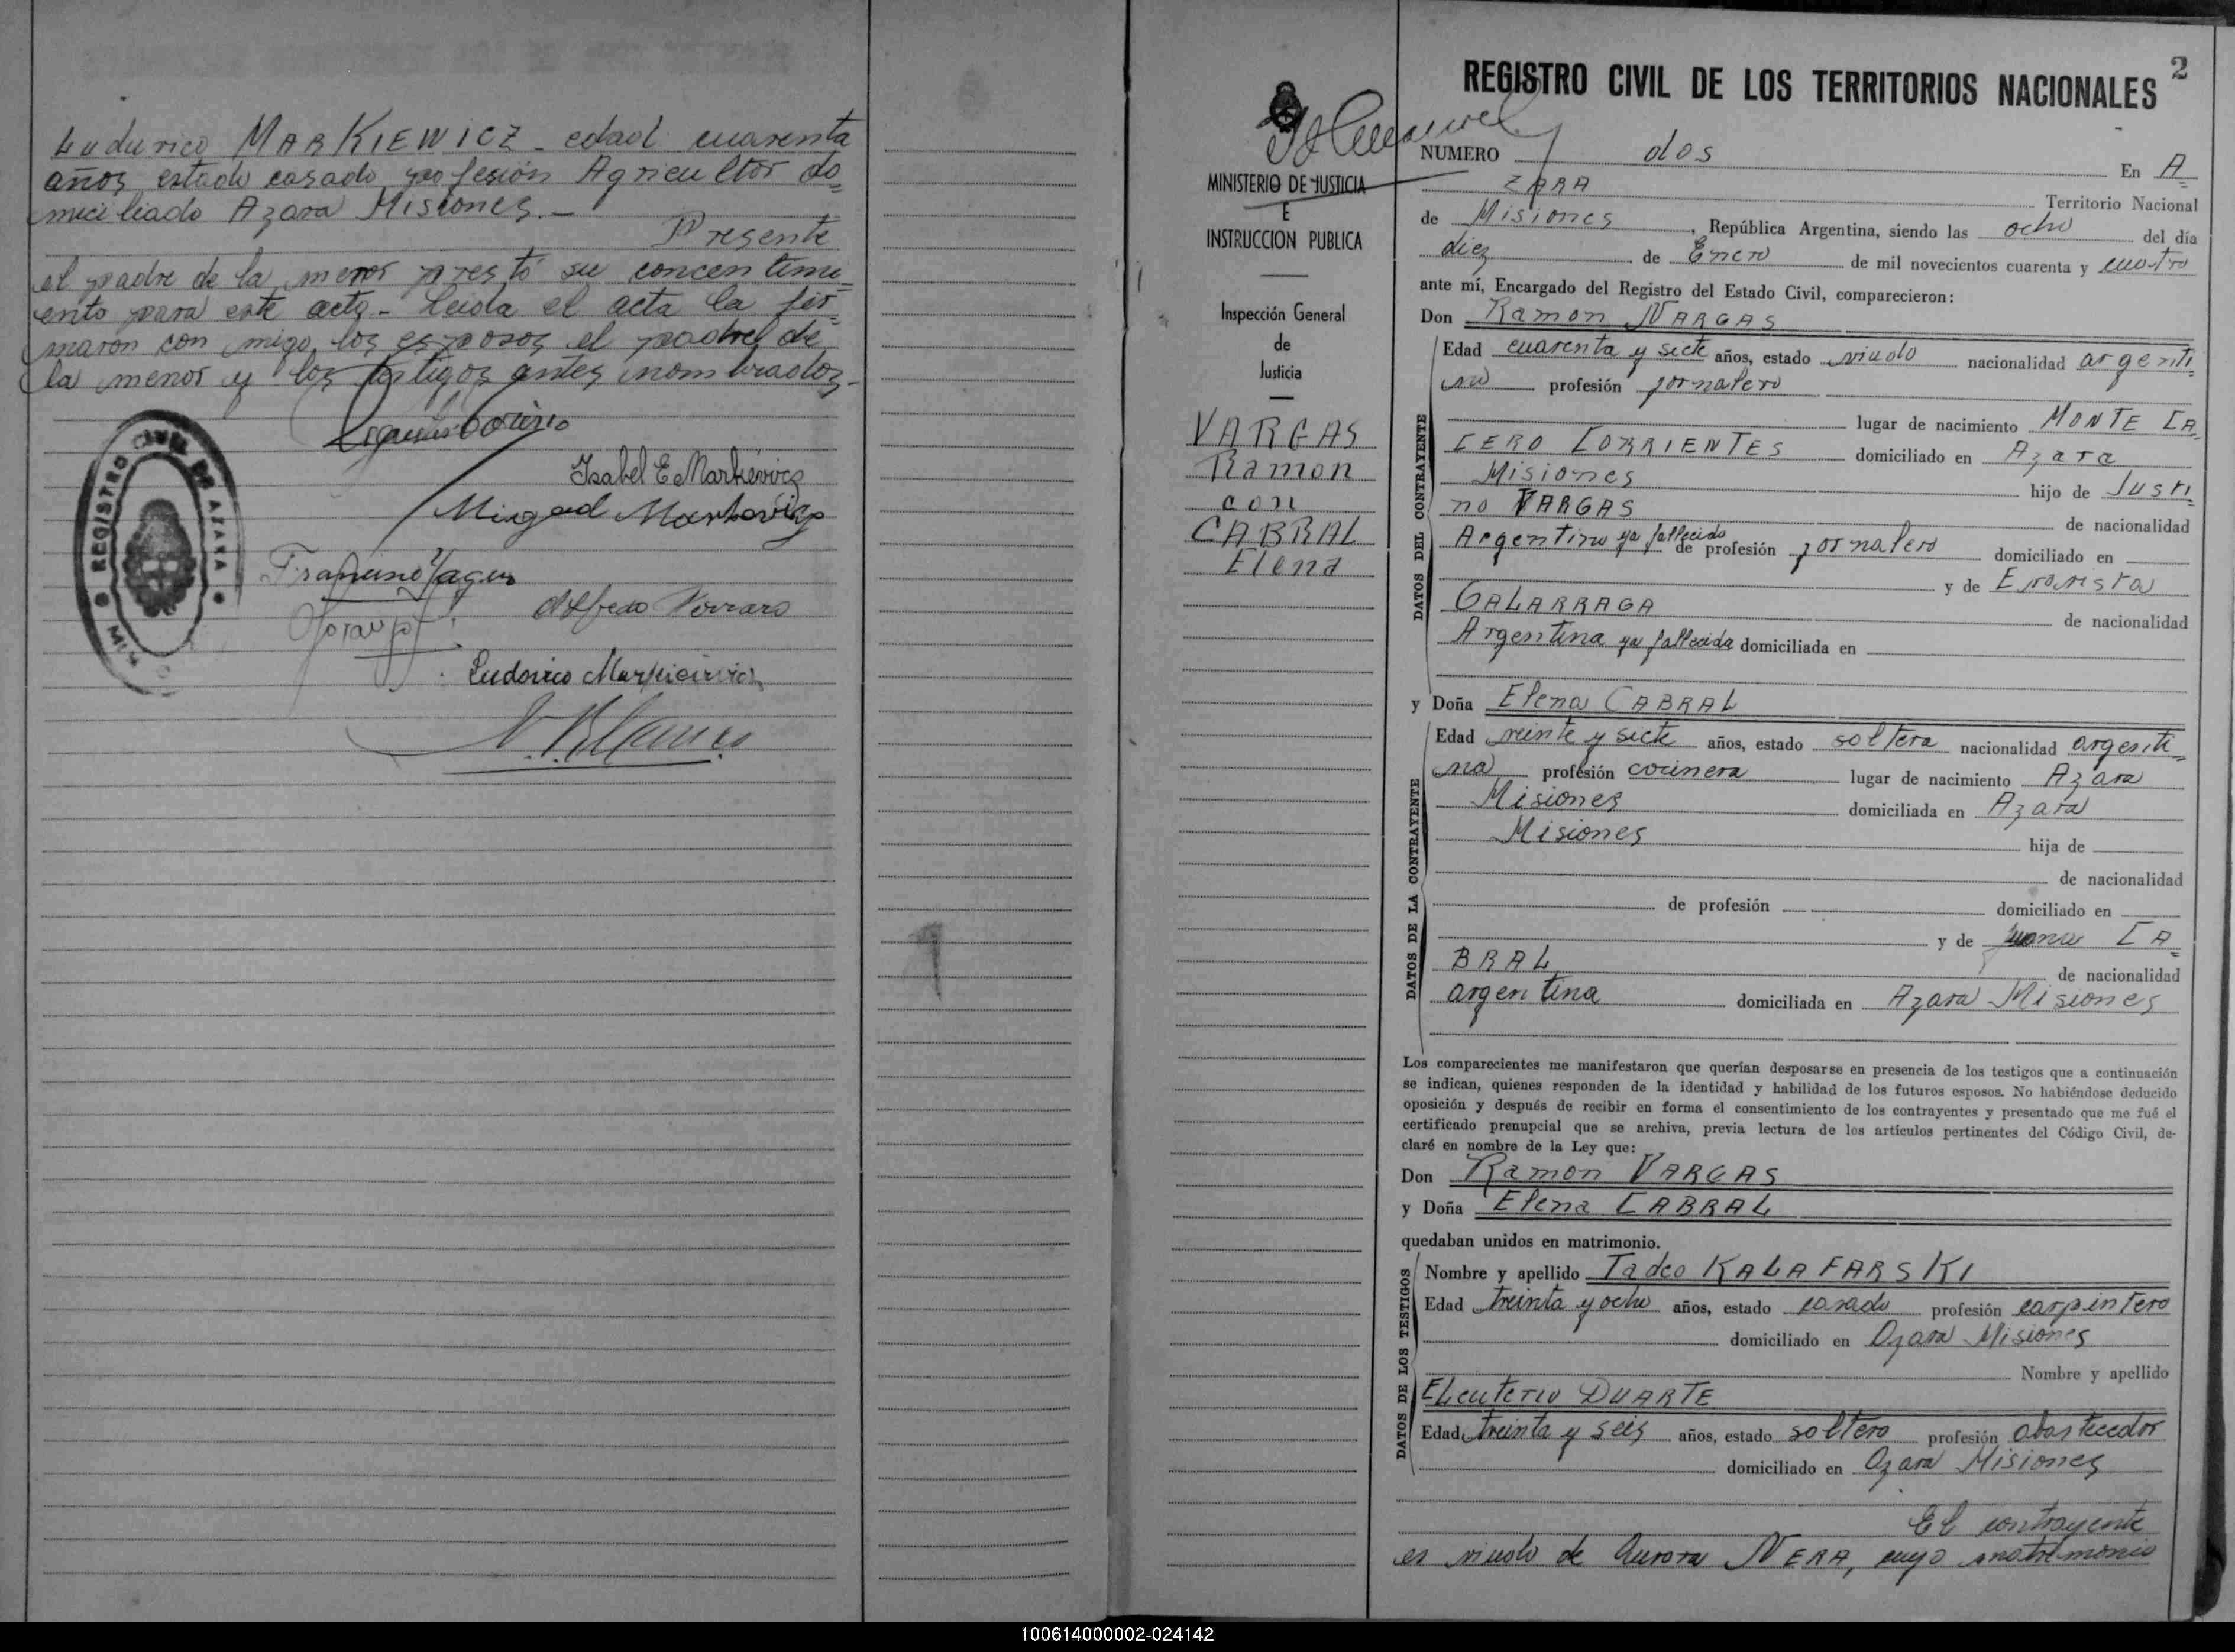 Ludurico MARKIEWICZ - edad cuarenta
años estado casado profesión Agricultor do=
miciliado Azara Misiones.-
Presente
el padre de la menor prestó su concentimi=
ento para este acto - Leida el acta la fir=
maron con migo los esposos el padre de
la menor y los testigos antes nombrados-
Isabel E Markievicz
REGISTRO CIVIL DE AZARA
Alfredo Ferraro
Ludovico Markieivicz
1
MINISTERIO DE JUSTICIA
E
INSTRUCCION PUBLICA
Inspección General
de
Justicia
VARGAS
Ramon
con
CABRAL
Elena
2
REGISTRO CIVIL DE LOS TERRITORIOS NACIONALES
NUMERO dos En A=
ZARA Territorio Nacional
de Misiones, República Argentina, siendo las ocho del día
diez de Enero de mil novecientos cuarenta y cuatro
ante mí, Encargado del Registro del Estado Civil, comparecieron:
Don Ramon VARGAS
DATOS DEL CONTRAYENTE
Edad cuarenta y siete años, estado viudo nacionalidad argenti=
no profesión jornalero
lugar de nacimiento MONTE CA=
CERO CORRIENTES domiciliado en Azara
Misiones hijo de Justi=
no VARGAS de nacionalidad
Argentino ya fallecido de profesión jornalero domiciliado en
y de Evarista
GALARRAGA de nacionalidad
Argentina ya fallecida domiciliada en
y Doña Elena CABRAL
DATOS DE LA CONTRAYENTE
Edad veinte y siete años, estado soltera nacionalidad argenti=
na profesión cocinera lugar de nacimiento Azara
Misiones domiciliada en Azara
Misiones hija de
de nacionalidad
de profesión domiciliado en
y de Juana CA=
BRAL de nacionalidad
argentina domiciliada en Azara Misiones
Los comparecientes me manifestaron que querían desposarse en presencia de los testigos que a continuación
se indican, quienes responden de la identidad y habilidad de los futuros esposos. No habiéndose deducido
oposición y después de recibir en forma el consentimiento de los contrayentes y presentado que me fué el
certificado prenupcial que se archiva, previa lectura de los artículos pertinentes del Código Civil, de-
claré en nombre de la Ley que:
Don Ramon VARGAS
y Doña Elena CABRAL
quedaban unidos en matrimonio.
DATOS DE LOS TESTIGOS
Nombre y apellido Tadeo KALAFARSKI
Edad treinta y ocho años, estado casado profesión carpintero
domiciliado en Azara Misiones
Nombre y apellido
Eleuterio DUARTE
Edad treinta y seis años, estado soltero profesión abastecedor
domiciliado en Azara Misiones
El contrayente
es viudo de Aurora VERA, cuyo matrimonio
100614000002-024142